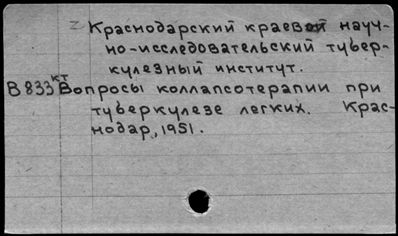 Краснодарский краевой науч-
но-исследовательский тубер-
кулезный институт.
В 833кт Вопросы коллапсотерапии при
туберкулезе легких. Крас-
нодар, 1951.